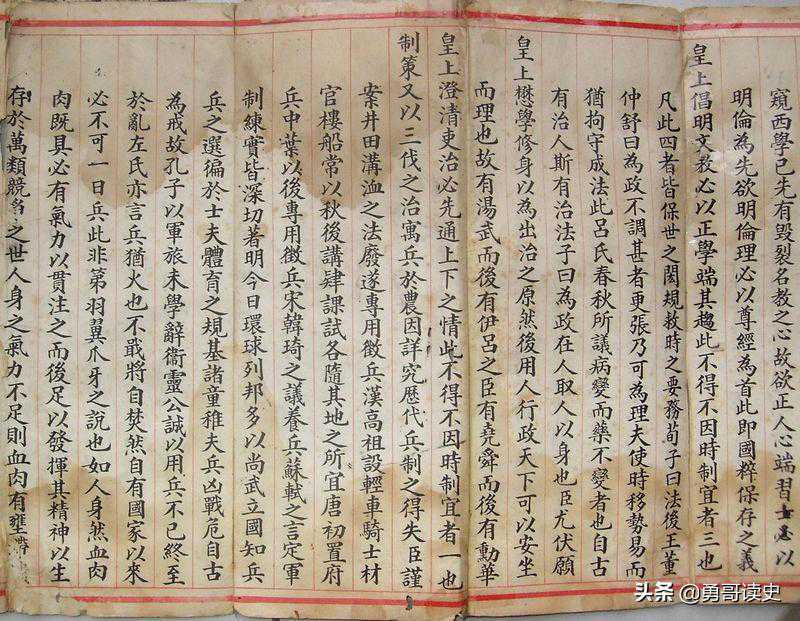 窺西學已先有毀裂名教之心故欲正人心端習士必以
明倫為先欲明倫理必以尊經為首此即國粹保存之義
皇上倡明文教必以正學端其趨此不得不因時制宜者三也
凡此四者皆保世之閎規救時之要務荀子曰法後王董
仲舒曰為政不調甚者更張乃可為理夫使時移勢易而
猶拘守成法此呂氏春秋所議病變而藥不變者也自古
有治人斯有治法子曰為政在人取人以身也臣尤伏願
皇上懋學修身以為出治之原然後用人行政天下可以安坐
而理也故有湯武而後有伊呂之臣有堯舜而後有勳華
皇上澄清吏治必先通上下之情此不得不因時制宜者一也
制策又以三代之治寓兵於農因詳究歷代兵制之得失臣謹
案井田溝洫之法廢遂專用徵兵漢高祖設輕車騎士材
官樓船常以秋後講肄課試各隨其地之所宜唐初置府
兵中葉以後專用徵兵宋韓琦之議養兵蘇軾之言定軍
制練實皆深切著明今日環球列邦多以尚武立國知兵
兵之選徧於士夫體育之規基諸童稚夫兵凶戰危自古
為戒故孔子以軍旅未學辭衛靈公誠以用兵不已終至
於亂左氏亦言兵猶火也不戢將自焚然自有國家以來
必不可一日兵此非第羽翼爪牙之說也如人身然血肉
肉既具必有氣力以貫注之而後足以發揮其精神以生
存於萬類競名之世人身之氣力不足則血肉有壅滯
头条 @勇哥读史